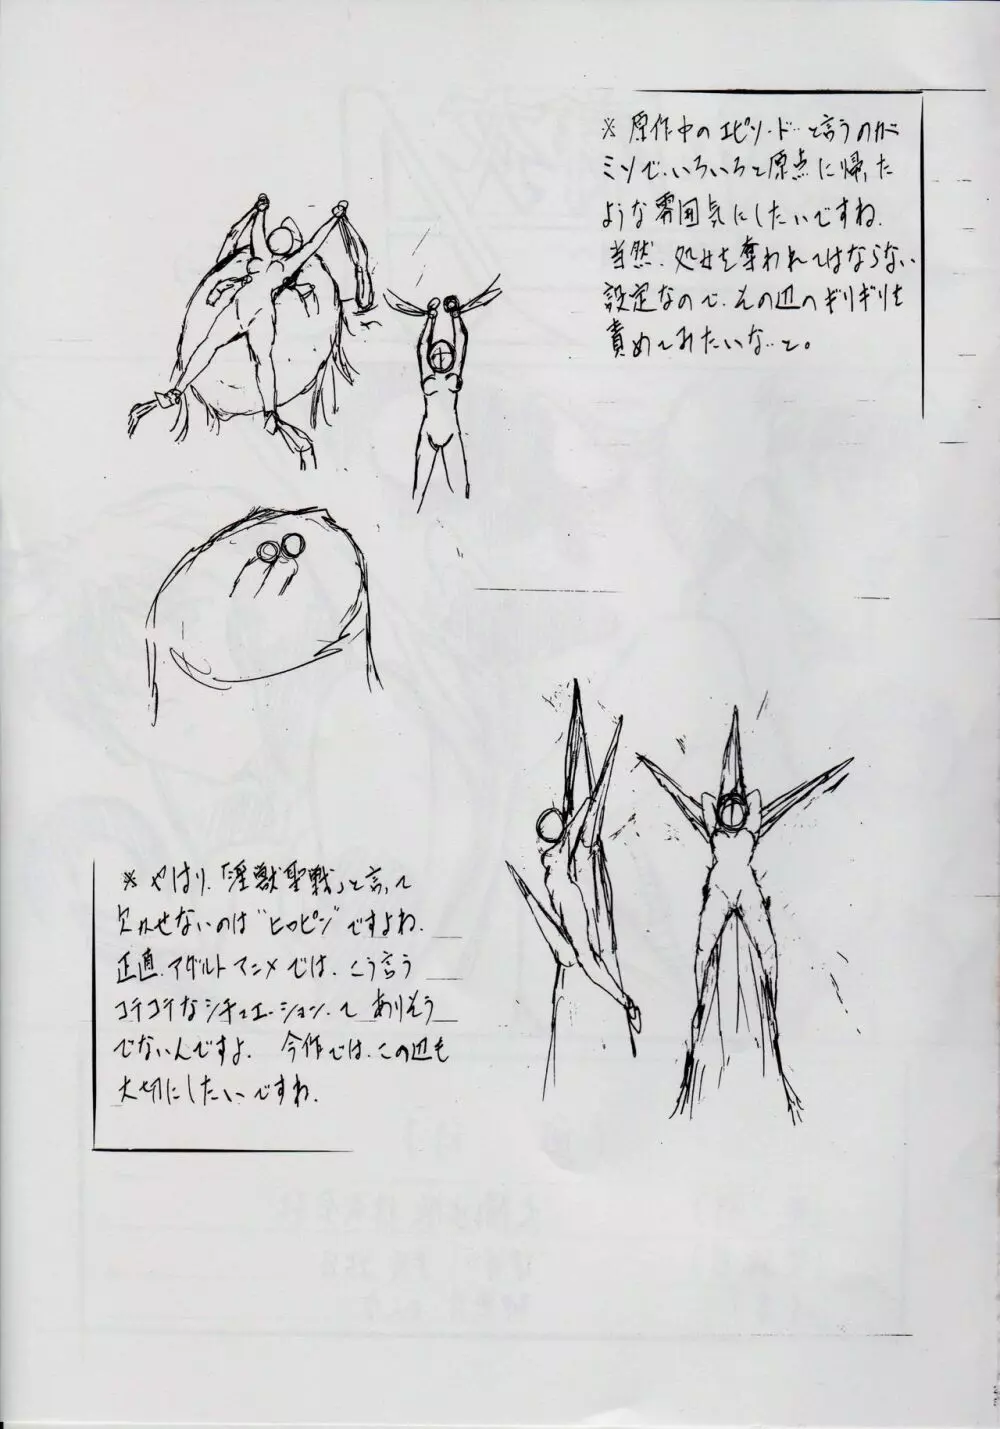 ※ 原作中のエピソードと言うのが
ミソで、いろいろと原点に帰った
ような雰囲気にしたいですね。
当然、処女を奪われてはならない
設定なので、その辺のギリギリを
責めてみたいな…と。
※ やはり、「淫獣聖戦」と言って
欠かせないのは"ヒロピン"ですよね。
正直、アダルトアニメでは、こう言う
コテコテなシチュエーションってありそう
でないんですよ。 今作では、この辺も
大切にしたいですね。